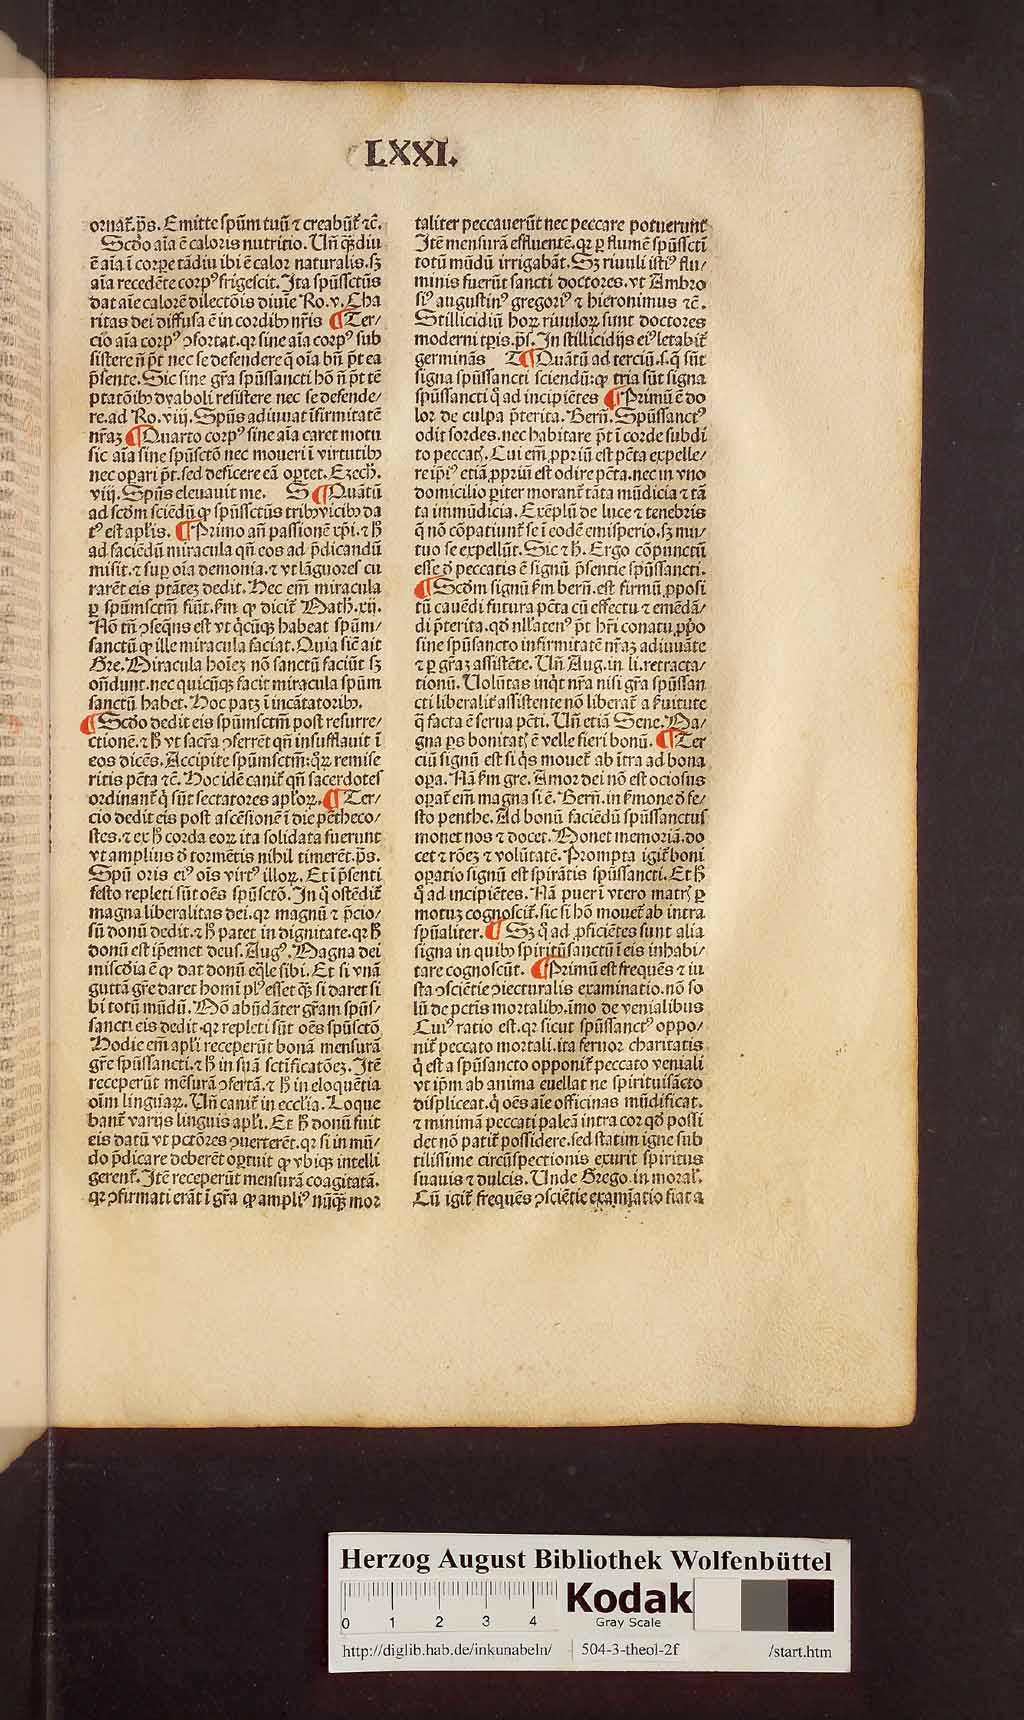 LXXI.
ornat᷑. p̄s. Emitte spūm tuū ⁊ creabūt᷑ ⁊c̄.
Scd̄o aīa ē caloris nutritio. Uñ qȝ̄diu
ē aīa ī corꝑe tādiu ibi ē calor naturalis. sȝ
aīa recedēte corpꝰ frigescit. Ita spūssctūs
dat aīe calorē dilectōis diuīe Ro. v. Cha
ritas dei diffusa ē in cordibꝰ nr̄is ¶ Ter⸗
cio aīa corpꝰ ↄfortat. qꝛ sine aīa corpꝰ sub
sistere nō p̄t nec se defendere q̄ oīa bn̄ p̄t ea
p̄sente. Sic sine gr̄a spūssancti hō nō p̄t tē
ptatōibꝰ dyaboli resistere nec se defende⸗
re. ad Ro. viij. Spūs adiuuat īfirmitatē
nr̄aȝ ¶ Quarto corpꝰ sine aīa caret motu
sic aīa sine spūsctō nec moueri ī virtutibꝰ
nec oꝑari p̄t. sed deficere eā oꝑtet. Ezech.
viij. Spūs eleuauit me. S ¶ Quātū
ad scd̄m sciēdū ꝙ spūssctūs tribꝰ vicibꝰ da
tꝰ est apl̄is. ¶ Primo añ passionē xp̄i. ⁊ ħ
ad faciēdū miracula qn̄ eos ad p̄dicandū
misit. ⁊ suꝑ oīa demonia. ⁊ vt lāguores cu
rarēt eis ptātez dedit. Hec em̄ miracula
ꝑ spūmsctm̄ fiūt. ẜm ꝙ dicit᷑ Math. xij.
Nō tn̄ ↄseqn̄s est vt q̇cūqȝ habeat spūm⸗
sanctū ꝙ ille miracula faciat. Quia sic̄ ait
Gre. Miracula hoīez nō sanctū faciūt sȝ
on̄dunt. nec quicūqȝ facit miracula spūm
sanctū habet. Hoc patȝ ī incātatoribꝰ.
¶ Scd̄o dedit eis spūmsctm̄ post resurre⸗
ctionē. ⁊ ħ vt sacr̄a ↄferrēt qn̄ insufflauit ī
eos dicēs. Accipite spūmsctm̄: qꝝ remise
ritis pct̄a ⁊c̄. Hoc idē canit᷑ qn̄ sacerdotes
ordinant᷑ q̇ sūt sectatores apl̄oꝝ. ¶ Ter⸗
cio dedit eis post ascēsionē ī die pētheco⸗
stes. ⁊ ex ħ corda eoꝝ ita solidata fuerunt
vt amplius ꝺ tormētis nihil timerēt. p̄s.
Spū oris eiꝰ oīs virtꝰ illoꝝ. Et ī p̄senti
festo repleti sūt oēs spūsctō. In q̇ ostēdit᷑
magna liberalitas dei. qꝛ magnū ⁊ p̄cio⸗
sū donū dedit. ⁊ ħ patet in dignitate. qꝛ ħ
donū est ip̄emet deus. Augꝰ. Magna dei
miscd̄ia ē ꝙ dat donū eq̄le sibi. Et si vnā
guttā gr̄e daret homī plꝰ esset qȝ̄ si daret si
bi totū mūdū. Nō abūdāter gr̄am spūs⸗
sancti eis dedit. qꝛ repleti sūt oēs spūsctō
Hodie em̄ apl̄i receperūt bonā mensurā
gr̄e spūssancti. ⁊ ħ in suā sctificatōez. Itē
receperūt mēsurā ↄfertā. ⁊ ħ in eloquētia
oīm linguaꝝ. Uñ canit᷑ in eccl̄ia. Loque
bant᷑ varijs linguis apl̄i. Et ħ donū fuit
eis datū vt pctōres ↄuerterēt. qꝛ si in mū⸗
do p̄dicare deberēt oꝑtuit ꝙ vbiqȝ intelli
gerent᷑. Itē receperūt mensurā coagitatā.
qꝛ ↄfirmati erāt ī gr̄a ꝙ ampliꝰ nūqȝ̄ mor
taliter peccauerūt nec peccare potuerunt
Itē mensurā effluentē. qꝛ ꝑ flumē spūsscti
totū mūdū irrigabāt. Sȝ riuuli istiꝰ flu⸗
minis fuerūt sancti doctores. vt Ambro
siꝰ augustinꝰ gregoriꝰ ⁊ hieronimus ⁊c̄.
Stillicidiū hoꝝ riuuloꝝ sunt doctores
moderni tp̄is. p̄s. In stillicidijs eiꝰ letabit᷑
germinās T ¶ Quātū ad terciū. s. q̄ sūt
signa spūssancti sciendū: ꝙ tria sūt signa
spūssancti q̇ ad incipiētes ¶ Primū ē do
lor de culpa p̄terita. Bern̄. Spūssanctꝰ
odit sordes. nec habitare p̄t ī corde subdi
to peccatꝭ. Cui em̄ ꝓpriū est pct̄a expelle⸗
re ip̄iꝰ etiā ꝓpriū est odire pct̄a. nec in vno
domicilio ꝑiter morant᷑ tāta mūdicia ⁊ tā
ta immūdicia. Exēplū de luce ⁊ tenebris
q̄ nō cōpatiunt᷑ se ī eodē emisperio. sȝ mu⸗
tuo se expellūt. Sic ⁊ ħ. Ergo cōpunctū
esse ꝺ peccatis ē signū p̄sentie spūssancti.
¶ Scd̄m signū ẜm bern̄. est firmū ꝓposi
tū cauēdi futura pct̄a cū effectu ⁊ emēdā⸗
di p̄terita. qd̄ nll̄atenꝰ p̄t hr̄i conatu ꝓp̄o
sine spūsancto infirmitatē nr̄aȝ adiuuāte
⁊ ꝑ gr̄aȝ assistēte. Uñ Aug. in li. retracta⸗
tionū. Uolūtas inq̇t nr̄a nisi gr̄a spūssan
cti liberalit᷑ assistente nō liberat᷑ a ẜuitute
q̄ facta ē serua pct̄i. Uñ etiā Sene. Ma⸗
gna ps bonitatꝭ ē velle fieri bonū. ¶ Ter
ciū signū est si q̇s mouet᷑ ab ītra ad bona
oꝑa. Nā ẜm gre. Amor dei nō est ociosus
oꝑat᷑ em̄ magna si ē. Bern̄. in ẜmone ꝺ fe⸗
sto penthe. Ad bonū faciēdū spūssanctus
monet nos ⁊ docet. Monet memoriā. do
cet ⁊ rōez ⁊ volūtatē. Prompta igit᷑ boni
oꝑatio signū est spirātis spūssancti. Et ħ
q̇ ad incipiētes. Nā puer ī vtero matrꝭ ꝑ
motuȝ cognoscit᷑. sic si hō mouet᷑ ab intra
spūaliter. ¶ Sȝ q̇ ad ꝓficiētes sunt alia
signa in quibꝰ spiritūsanctū ī eis inhabi⸗
tare cognoscūt. ¶ Primū est frequēs ⁊ iu
sta ↄsciētie ↄiecturalis examinatio. nō so
lū de pctīs mortalibꝰ. imo de venialibus
Cuiꝰ ratio est. qꝛ sicut spūssanctꝰ oppo⸗
nit᷑ peccato mortali. ita feruor charitatis
q̇ est a spūsancto opponit᷑ peccato veniali
vt ip̄m ab anima euellat ne spirituisācto
displiceat. q̇ oēs aīe officinas mūdificat.
⁊ minimā peccati paleā intra cor qd̄ possi
det nō patit᷑ possidere. sed statim igne sub
tilissime circūspectionis exurit spiritus
suauis ⁊ dulcis. Unde Grego. in moral̄.
Cū igit᷑ frequēs ↄsciētie examiatio fiat a
Herzog August Bibliothek Wolfenbüttel
0 1 2 3 4
Kodak
Gray Scale
http://diglib.hab.de/inkunabeln/ 504-3-theol-2f /start.htm